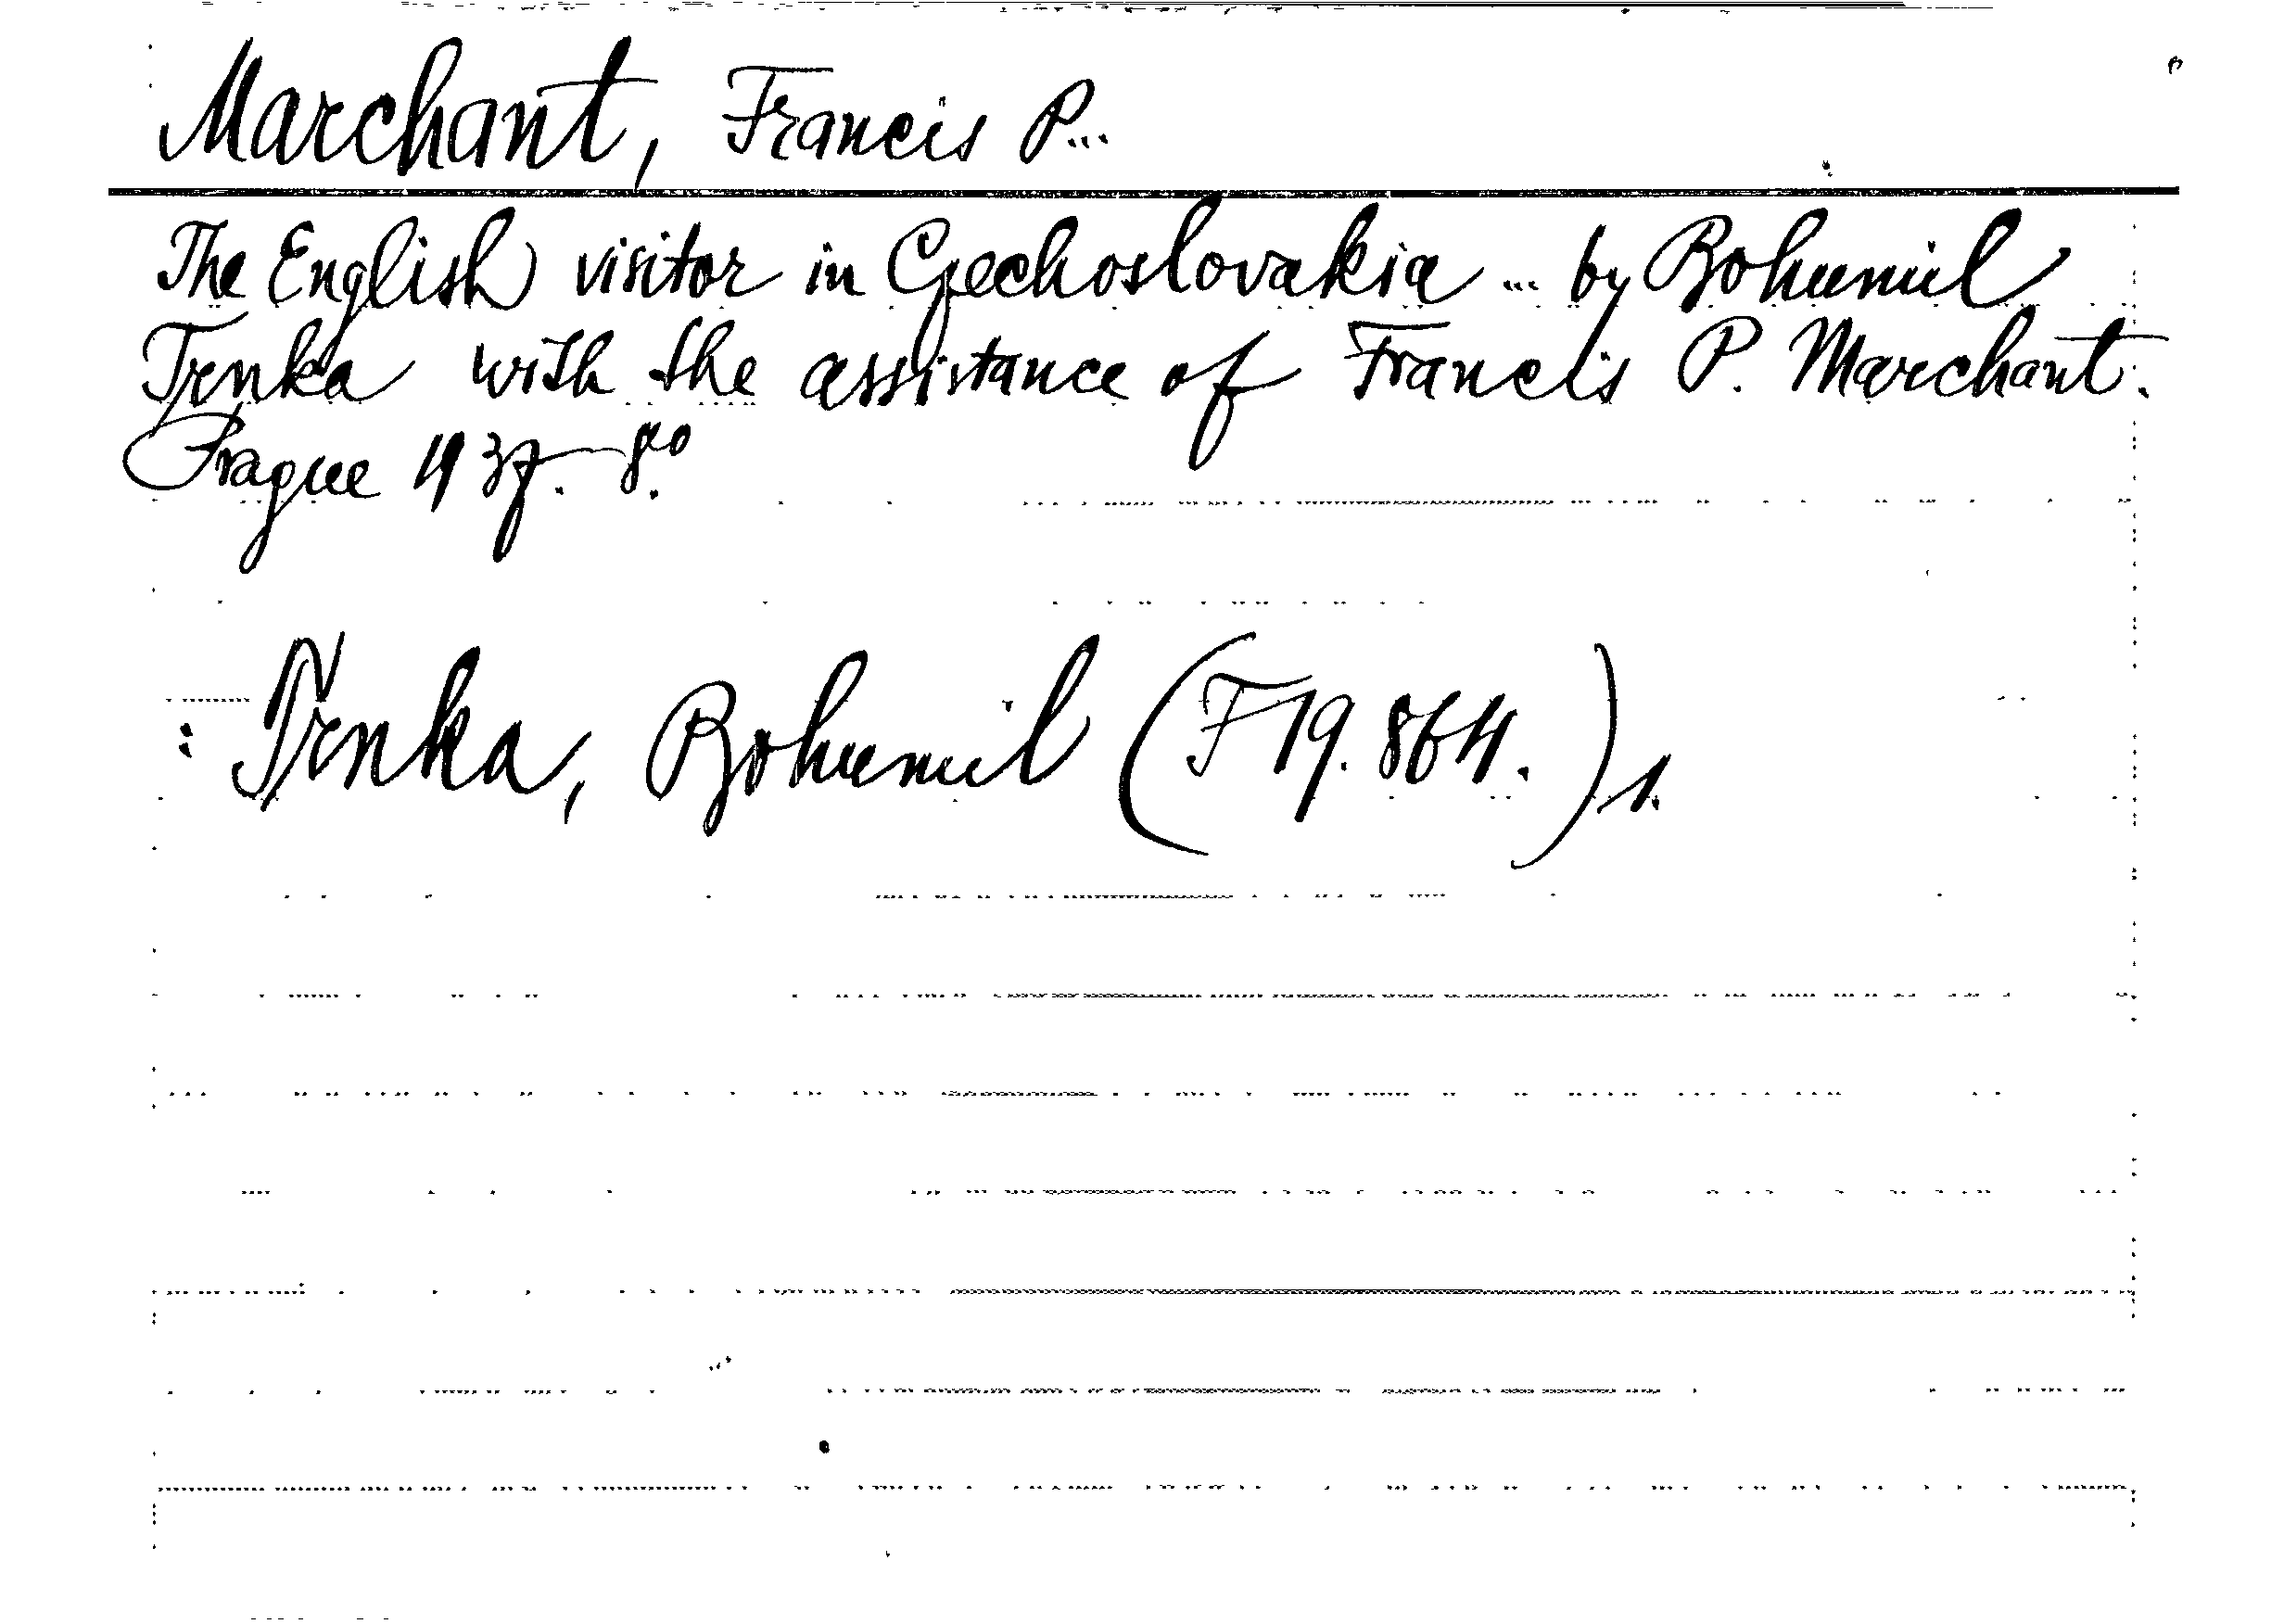 Marchant, Francis P...
The English visitor in Czechoslovakia ... by Bohumil
Trnka with the assistance of Francis P. Marchant.
Prague 1937. 8°
: Trnka, Bohumil (F 19.864.) 1.